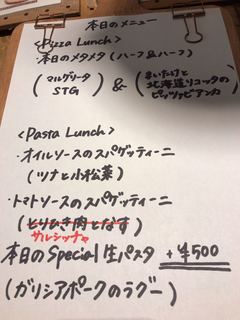 本日のメニュー
<Pizza Lunch>
本日のメタメタ(ハーフ&ハーフ)
(マルゲリータ STG) & (まいたけと北海道リコッタのピッツァビアンカ)
<Pasta Lunch>
・オイルソースのスパゲッティーニ
(ツナと小松菜)
・トマトソースのスパゲッティーニ
(とりひき肉となす)
サルシッチャ
本日のSpecial生パスタ +¥500
(ガリシアポークのラグー)